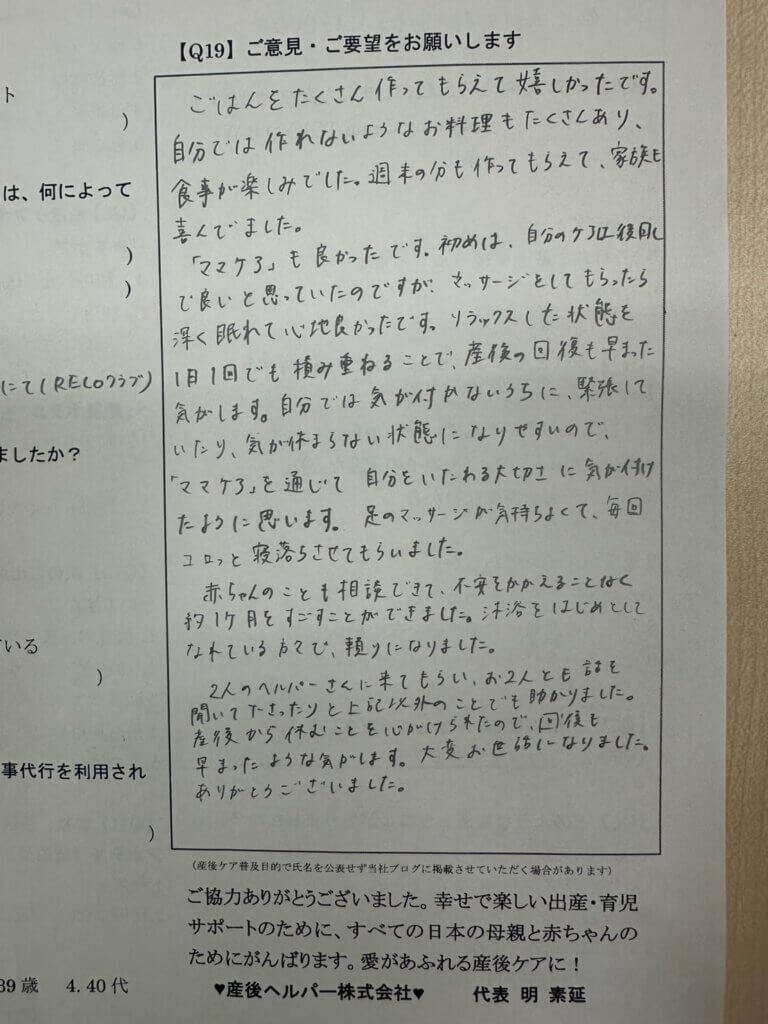 【Q19】ご意見・ご要望をお願いします
ごはんをたくさん作ってもらえて嬉しかったです。
自分では作れないようなお料理もたくさんあり、
食事が楽しみでした。週末の分も作ってもらえて、家族も
喜んでました。
「ママケア」も良かったです。初めは、自分のケアは後回し
で良いと思っていたのですが、マッサージをしてもらったら
深く眠れて心地良かったです。リラックスした状態を
1日1回でも積み重ねることで、産後の回復も早まった
気がします。自分では気が付かないうちに、緊張して
いたり、気が休まらない状態になりやすいので、
「ママケア」を通じて 自分をいたわる大切さに気が付け
たように思います。足のマッサージが気持ちよくて、毎回
コロッと寝落ちさせてもらいました。
赤ちゃんのことも相談できて、不安をかかえることなく
約1ケ月をすごすことができました。沐浴をはじめとして
なれている方々で、頼りになりました。
2人のヘルパーさんに来てもらい、お2人とも話を
聞いて下さったりと上記以外のことでも助かりました。
産後から休むことを心がけられたので、回復も
早まったような気がします。大変お世話になりました。
ありがとうございました。
（産後ケア普及目的で氏名を公表せず当社ブログに掲載させていただく場合があります）
ご協力ありがとうございました。幸せで楽しい出産・育児
サポートのために、すべての日本の母親と赤ちゃんの
ためにがんばります。愛があふれる産後ケアに！
♥産後ヘルパー株式会社♥ 代表 明 素延
ト
）
は、何によって
）
）
にて(RELOクラブ)
ましたか？
ている
）
事代行を利用され
）
39歳 4.40代